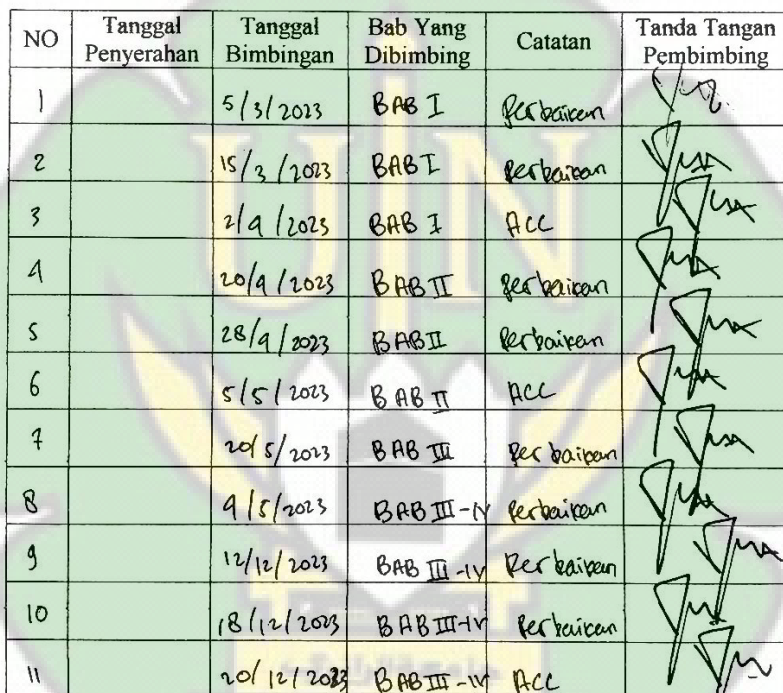 NO Tanggal Penyerahan Tanggal Bimbingan Bab Yang Dibimbing Catatan Tanda Tangan Pembimbing
1 5/3/2023 BAB I Perbaikan
2 15/3/2023 BAB I Perbaikan
3 2/4/2023 BAB I ACC
4 20/4/2023 BAB II Perbaikan
5 28/4/2023 BAB II Perbaikan
6 5/5/2023 BAB II ACC
7 20/5/2023 BAB III Perbaikan
8 9/5/2023 BAB III-IV Perbaikan
9 12/12/2023 BAB III-IV Perbaikan
10 18/12/2023 BAB III-IV Perbaikan
11 20/12/2023 BAB III-IV ACC
UIN